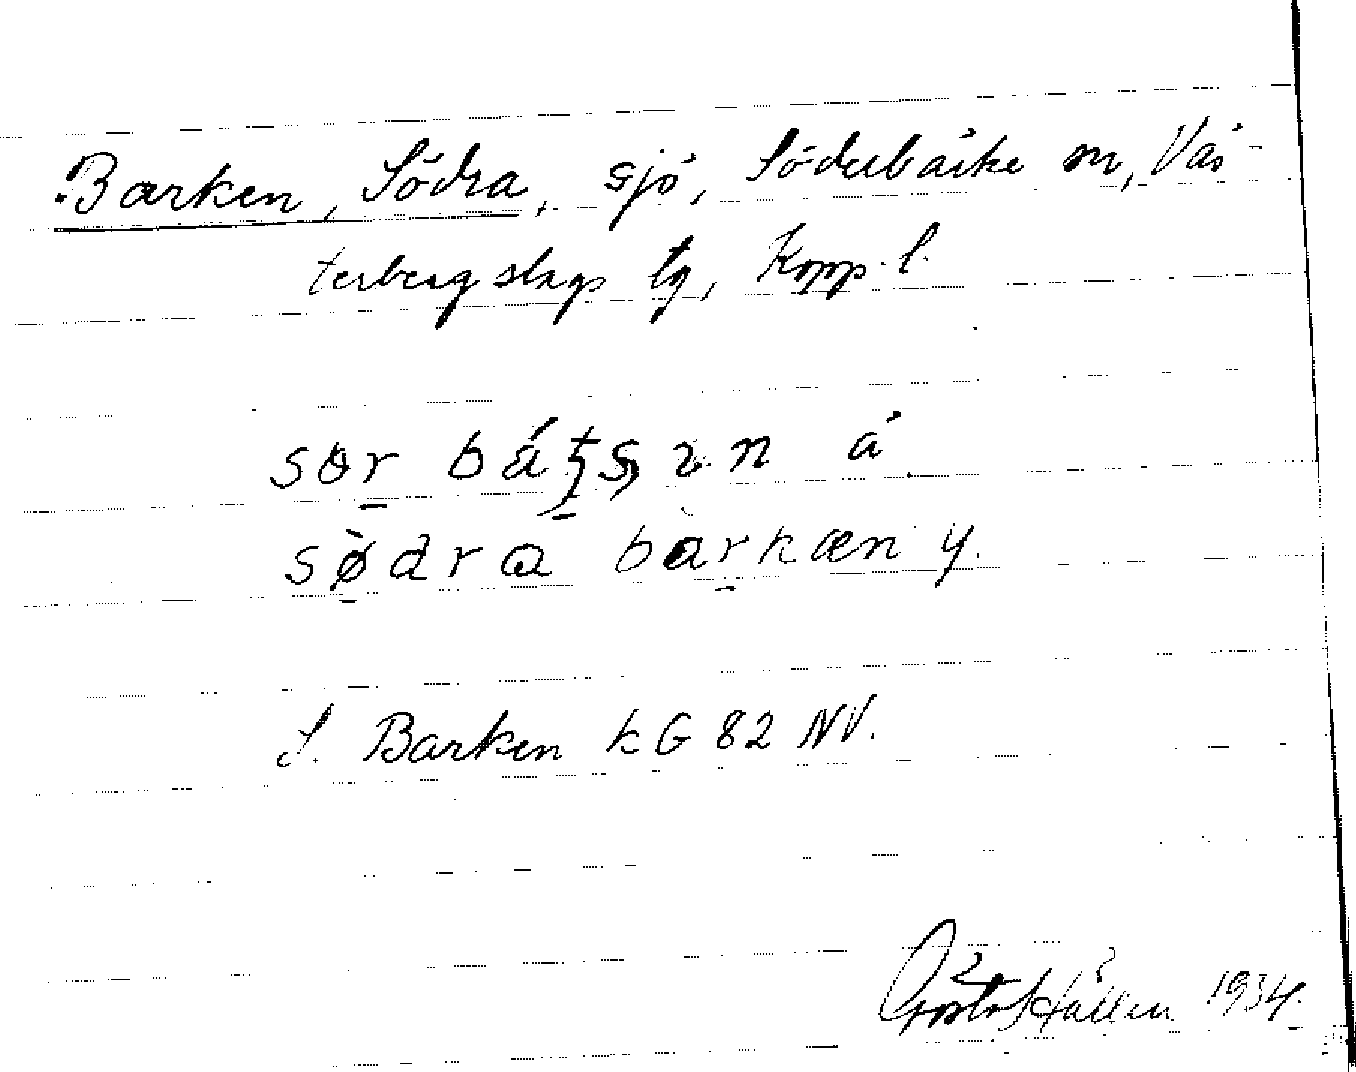 Barken, Södra, sjö, Söderbärke sn, Väs-
terbergslags tg, Kopp. l.
sør ba
södra barkæn y.
S. Barken k G 82 NV.
Gösta Hallén 1934.